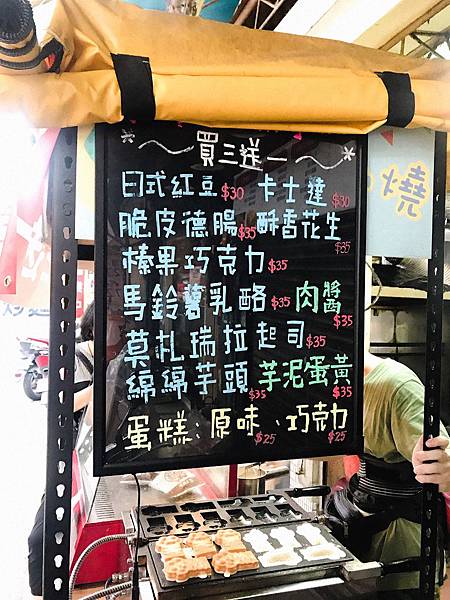 *~買三送一~*
日式紅豆$30 卡士達$30
脆皮德腸$35 酥香花生$35
榛果巧克力$35
馬鈴薯乳酪$35 肉醬$35
莫札瑞拉起司$35
綿綿芋頭$35 芋泥蛋黃$35
蛋糕:原味$25、巧克力$25
燒